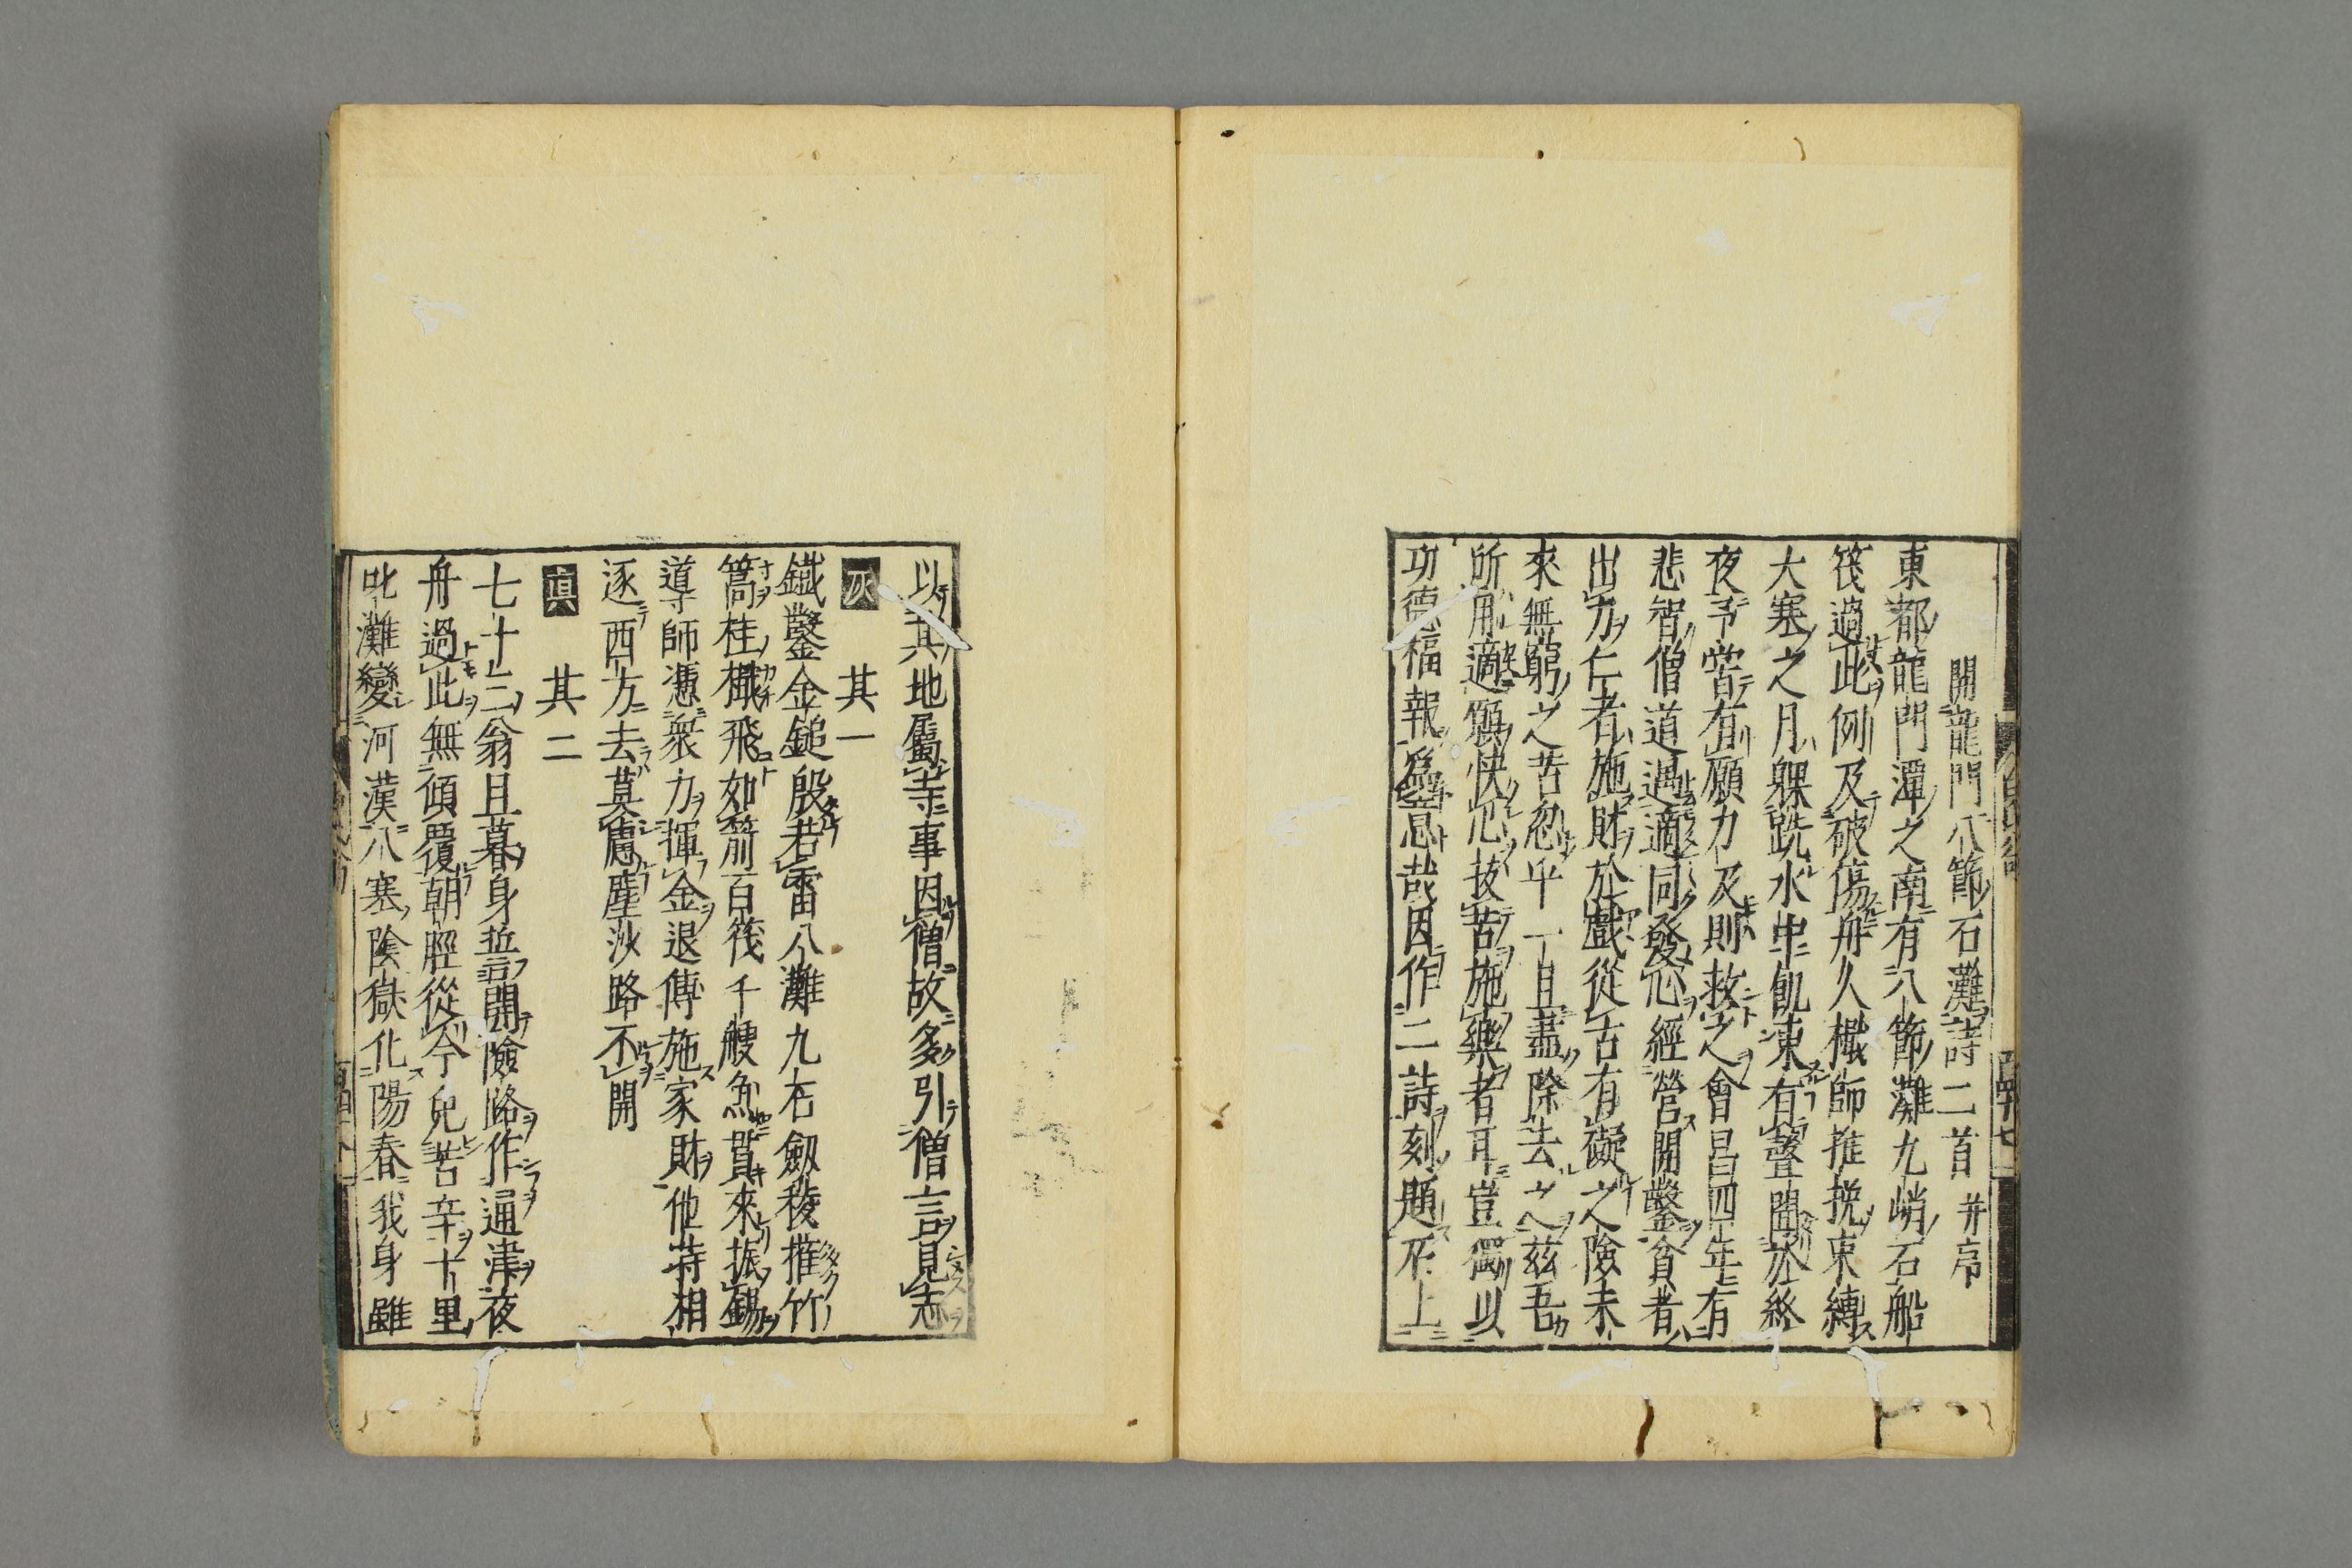 開龍門八節石灘詩二首并序
東都龍門潭之南有八節灘九峭石船
筏過此例及破傷舟人檝師推挽束縛
大寒之月躶跣水中飢凍有聲聞於終
夜予嘗有願力及則救之會昌四年有
悲智僧道遇適同發心經營開鑿貧者
出力仁者施財於戲從古有礙之險未
來無窮之苦忽乎一旦盡除去之茲吾
所用適願快心拔苦施樂者耳豈獨以
功德福報爲意哉因作二詩刻題石上
以其地屬寺事因僧故多引僧言見志
灰 其一
鐵鑿金鎚殷若雷八灘九石劒稜摧竹
篙桂檝飛如箭百筏千艘魚貫來振錫
導師憑衆力揮金退傅施家財他時相
逐西方去莫慮塵沙路不開
真 其二
七十三翁旦暮身誓開險路作通津夜
舟過此無傾覆朝脛從今免苦辛十里
叱灘變河漢八寒陰獄化陽春我身雖